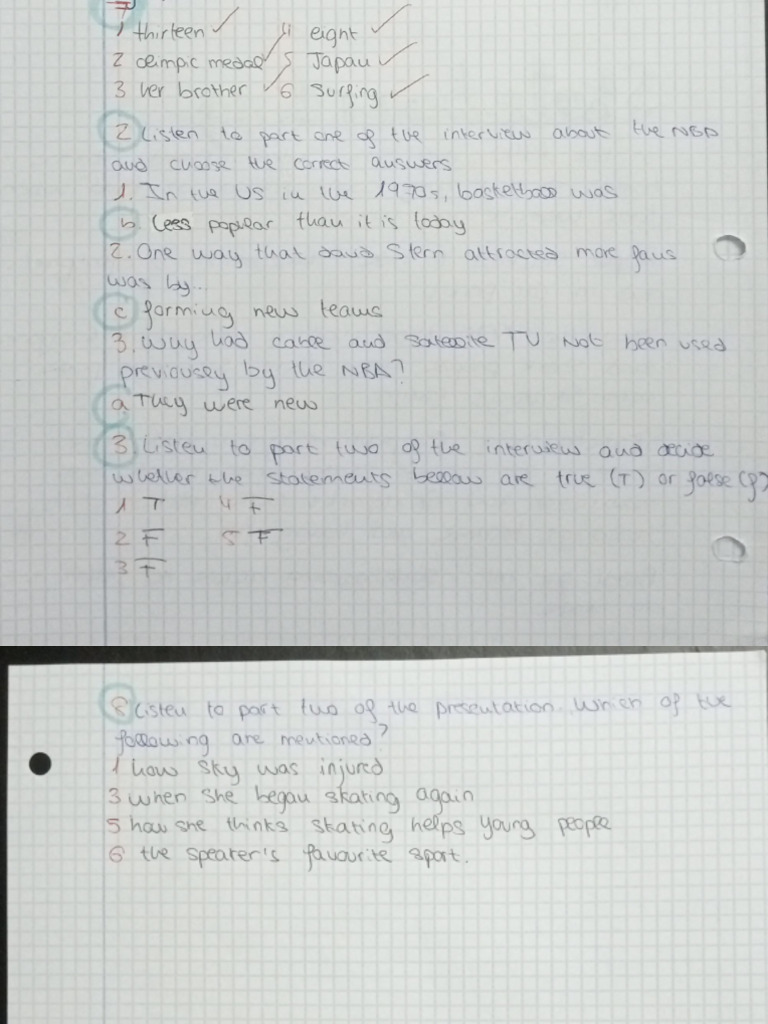 7
1 thirteen ✓ 4 eight ✓
2 olimpic medal ✓ 5 Japan ✓
3 her brother ✓ 6 surfing ✓
2 Listen to part one of the interview about the NBA
and choose the correct answers
1. In the US in the 1970s, basketball was
b. less popular than it is today
2. One way that David Stern attracted more fans
was by...
c forming new teams
3. Why had cable and satellite TV not been used
previously by the NBA?
a They were new
3 Listen to part two of the interview and decide
whether the statements bellow are true (T) or false (F)
1 T 4 F
2 F 5 F
3 T
8 Listen to part two of the presentation. Which of the
following are mentioned?
1 how Sky was injured
3 when she began skating again
5 how she thinks skating helps young people
6 the speaker's favourite sport.